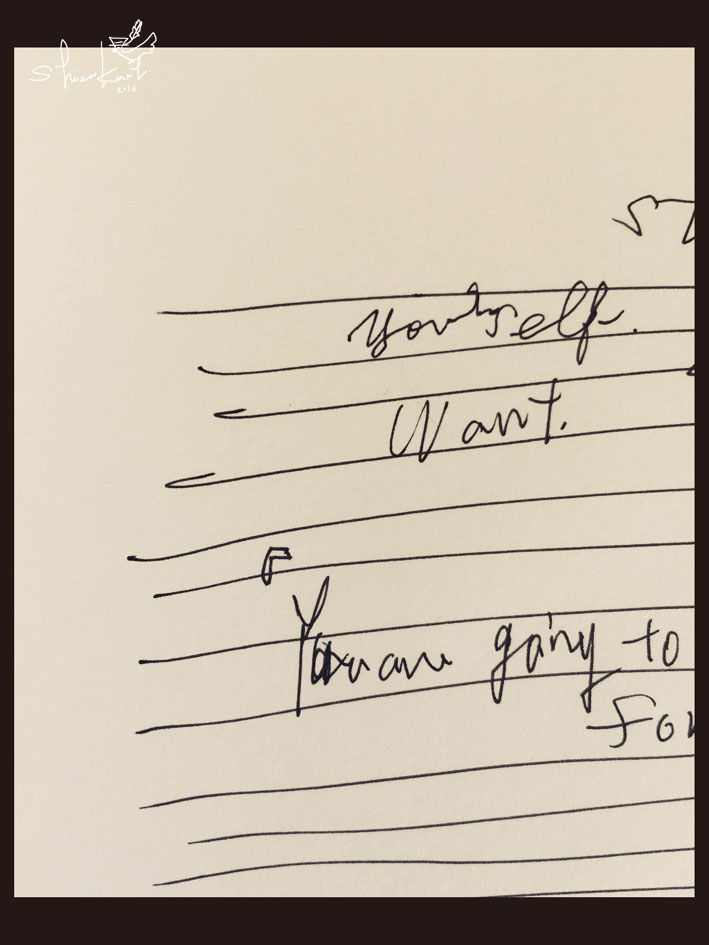 Shizukani
2016
Yourself.
Want.
「
You are going to
For